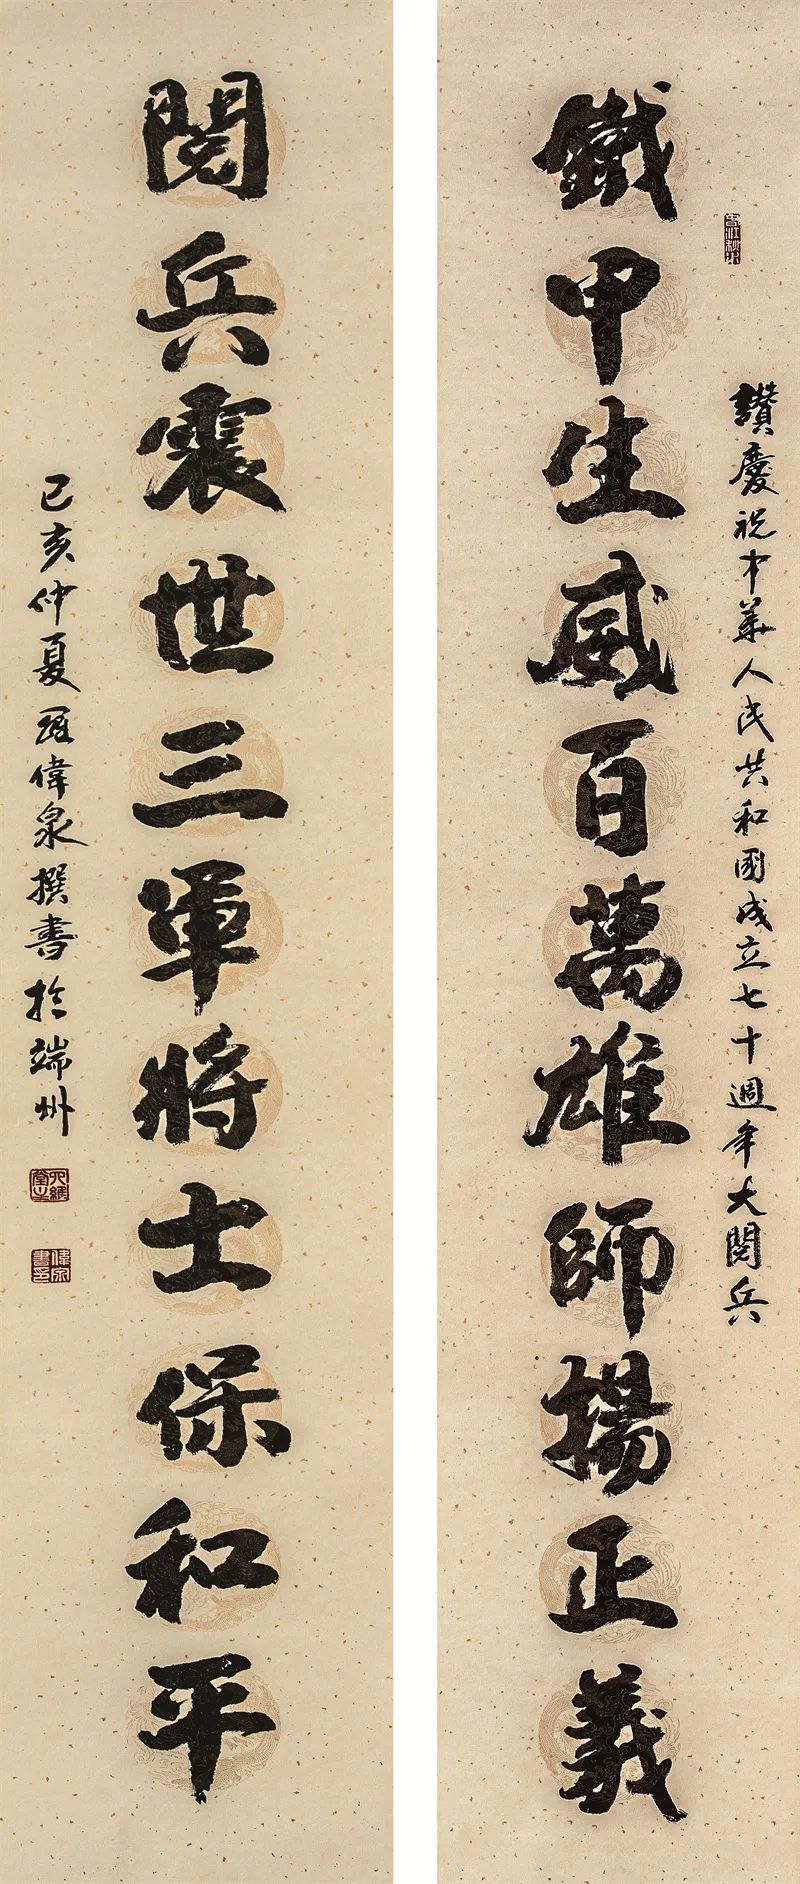 鐵甲生威百萬雄師揚正義
讚慶祝中華人民共和國成立七十週年大閱兵
閱兵震世三軍將士保和平
己亥仲夏羅偉泉撰書於端州